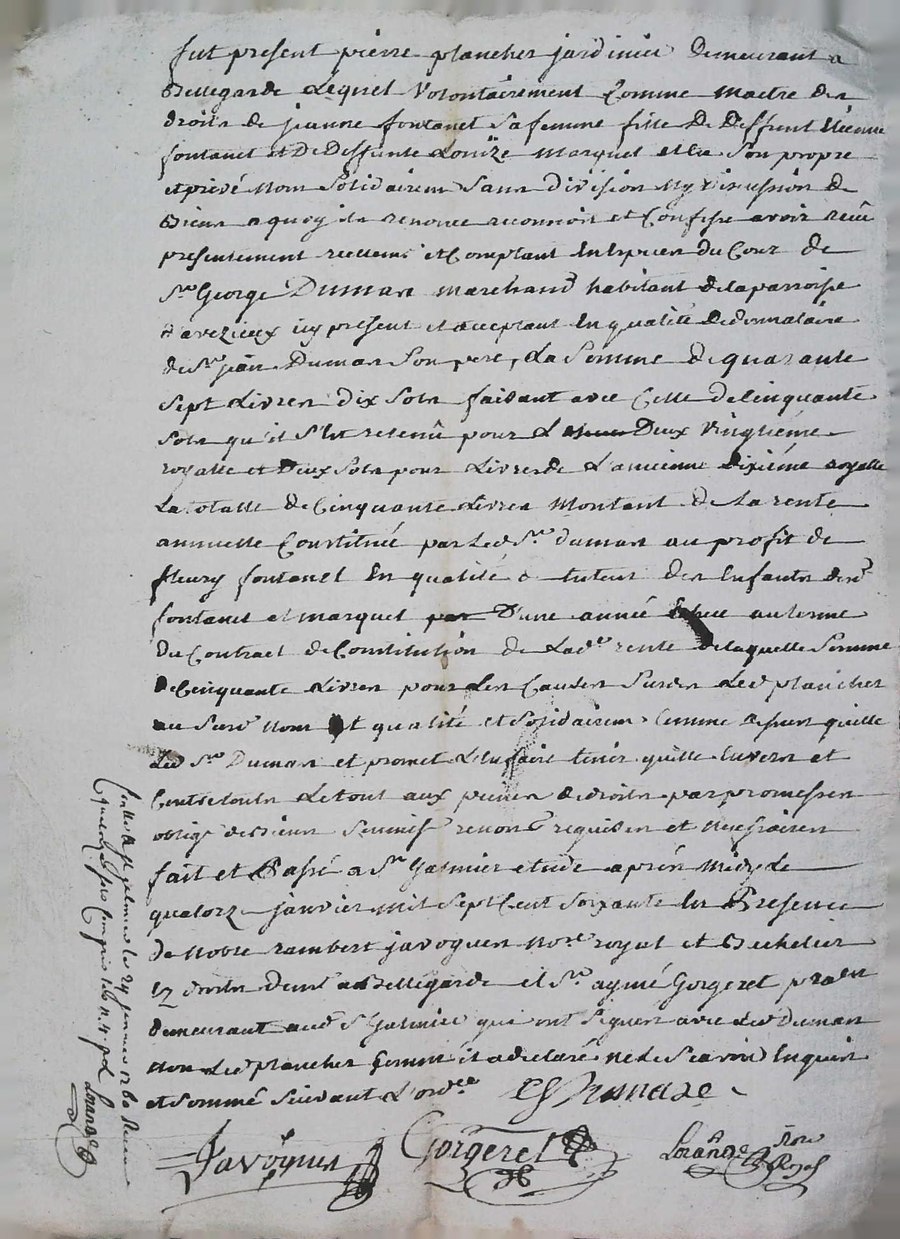 fut present pierre plancher jardinier demeurant a
Bellegarde Lequel Volontairement Comme maitre des
droits de jeanne fontanet sa femme fille de deffunt Etienne
fontanet et De Deffunte Louize marquet et En Son propre
et privé nom Solidairem.t Sans division ny discussion de
Biens a quoy ils renonce reconnoit et Confesse avoir receu
presentement reellem.t et Comptant En Especes du Cour de
S.r George Dumas marchand habitant de la parroisse
d'avezieux icy present et acceptant En qualité de donnataire
de S.r jean Dumas Son pere, La Somme de quarante
Sept Livres dix Sols faisant avec Celle de Cinquante
Sols qu'il S'est retenû pour Les Deux Vingtiéme
royalle et Deux Sols pour Livres de L'ancienne dixiéme royalle
La totalle de Cinquante Livres montant de La rente
annuelle Constituée par Led S.r dumas au profit de
fleury fontanet En qualité de tuteur des Enfants des.ts
fontanet et marquet D'une année Echeue au terme
du Contract de Constitution de Lad.e rente de laquelle Somme
de Cinquante Livres pour Les Causes Susd.es Led plancher
au Susd nom Et qualité et Solidairem.t Comme dessus quitte
Led S.r Dumas et promet L'En faire tenir quitte Envers et
Contre touts Le tout aux peines de droits par promesses
oblig de Biens Soumis renon.s requises et necessaires
fait et Passé a S.t Galmier etude aprés midy Le
quatorz janvier mil Sept Cent Soixante En Presence
de Noble rambert javoguen No.re royal et Bachelier
Ez droits dem.t a Bellegarde et S.r aymé Gorgeret prat.n
demeurant aud S.t Galmier qui ont Signes avec Led Dumas
Non Led plancher Comme il a declaré ne Le Scavoir Enquis
et Sommé Suivant L'ord.ce
G Dumas
Javoguen Gorgeret Lorande No.re Royal
Contlé a S.t galmier le 29 janvier 1760 Recu
Lorande